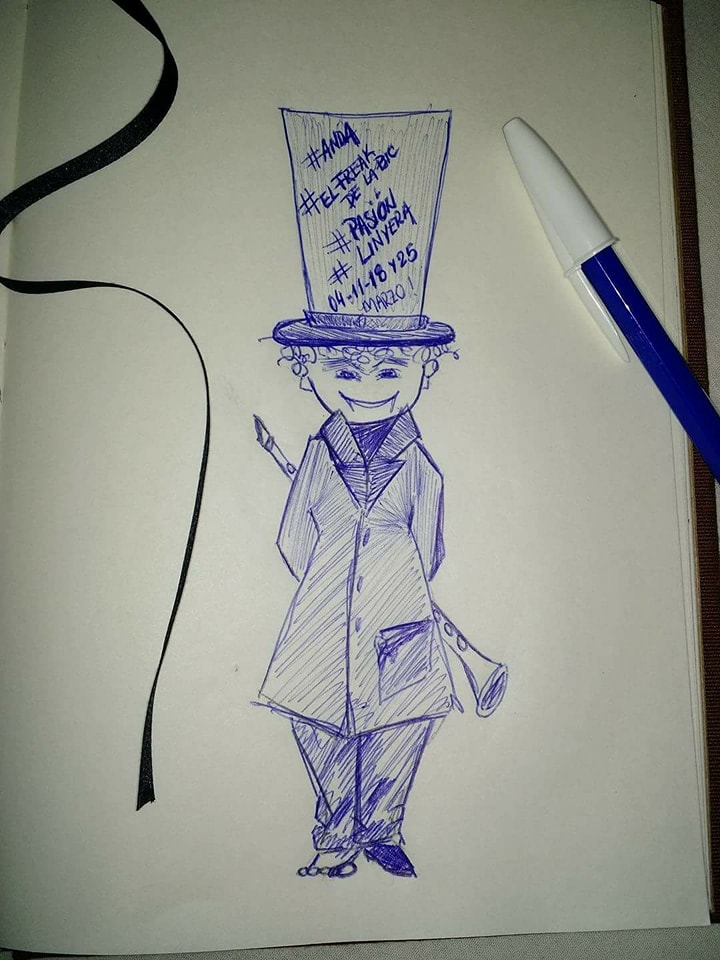 #ANDA
#EL FREAK
DE LA BIC
#PASIÓN
LINYERA
#
04-11-18 Y 25
MARZO!